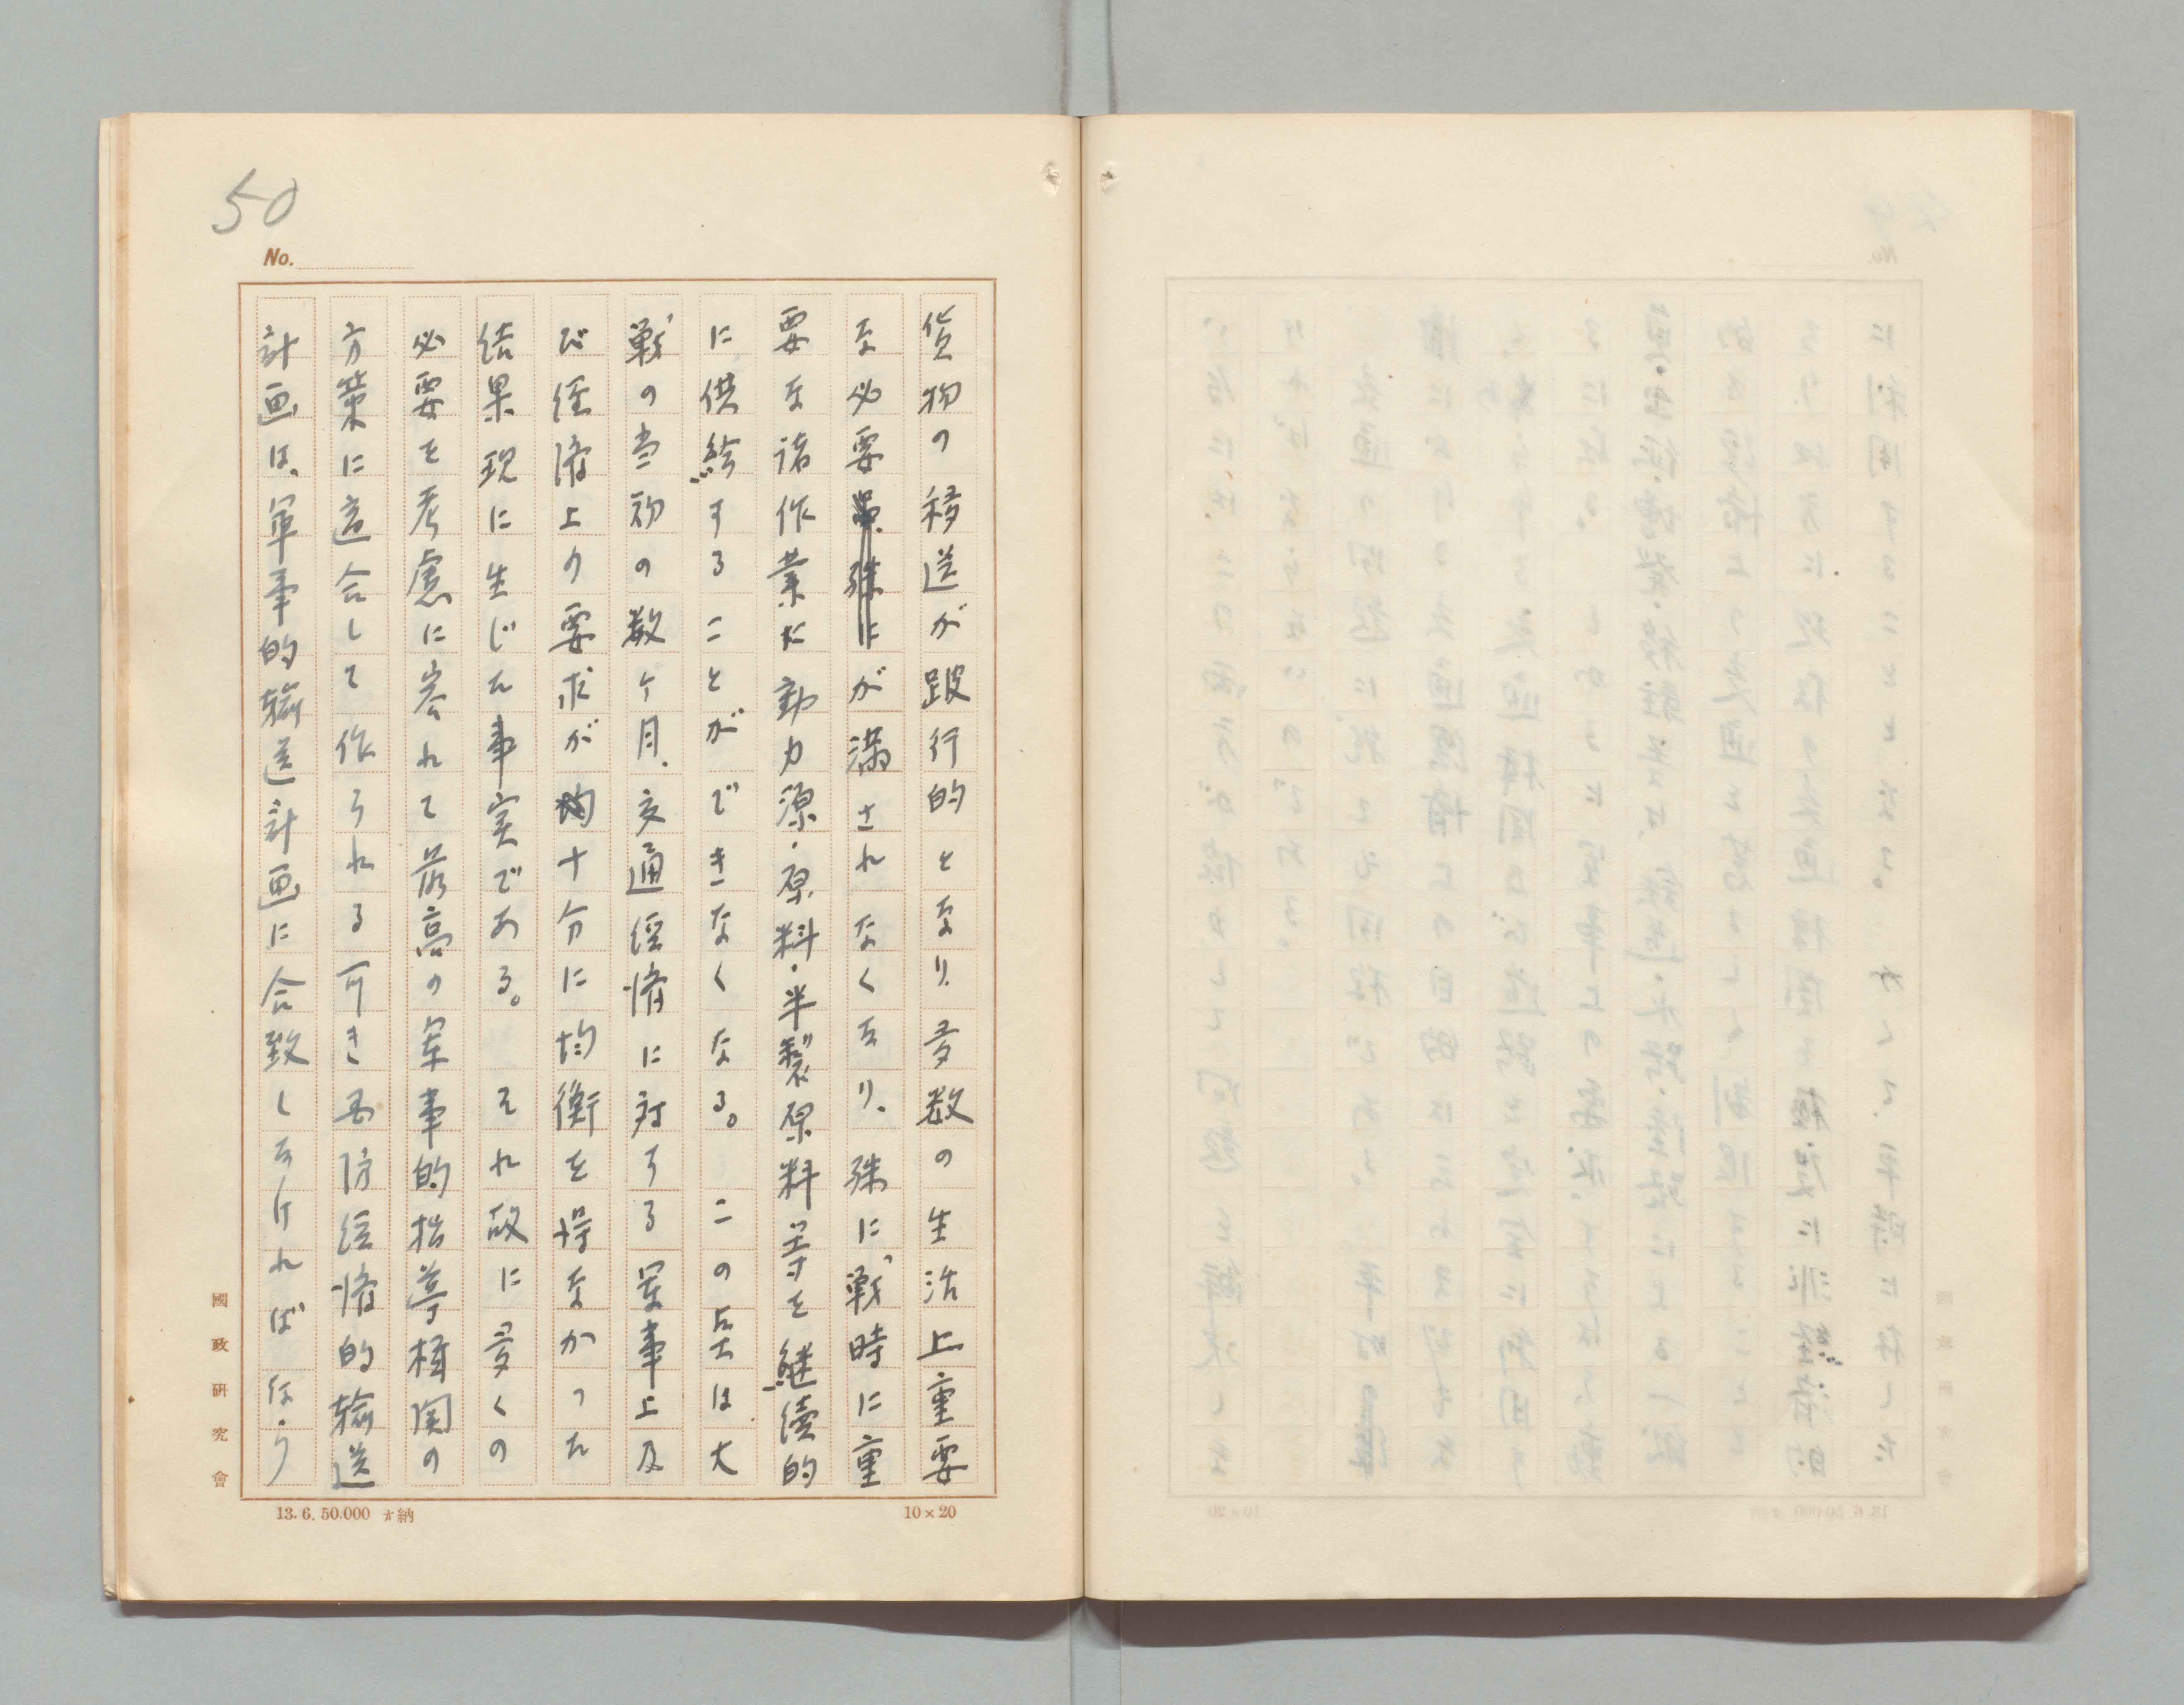 50
No.
貨物の移送が跛行的となり、多数の生活上重要
な必要が満されなくなり、殊に、戦時に重
要な諸作業だ動力源・原料・半製原料等を継続的
に供給することができなくなる。この点は大
戦の当初の数ケ月、交通経済に対する軍事上及
び経済上の要求が十分に均衡を得なかった
結果現に生じた事実である。それ故に多くの
必要を考慮に容れて最高の軍事的指導機関の
方策に適合して作られる可き国防経済的輸送
計画は、軍事的輸送計画に合致しなければなら
國政研究會
13.6.50.000 納
10×20